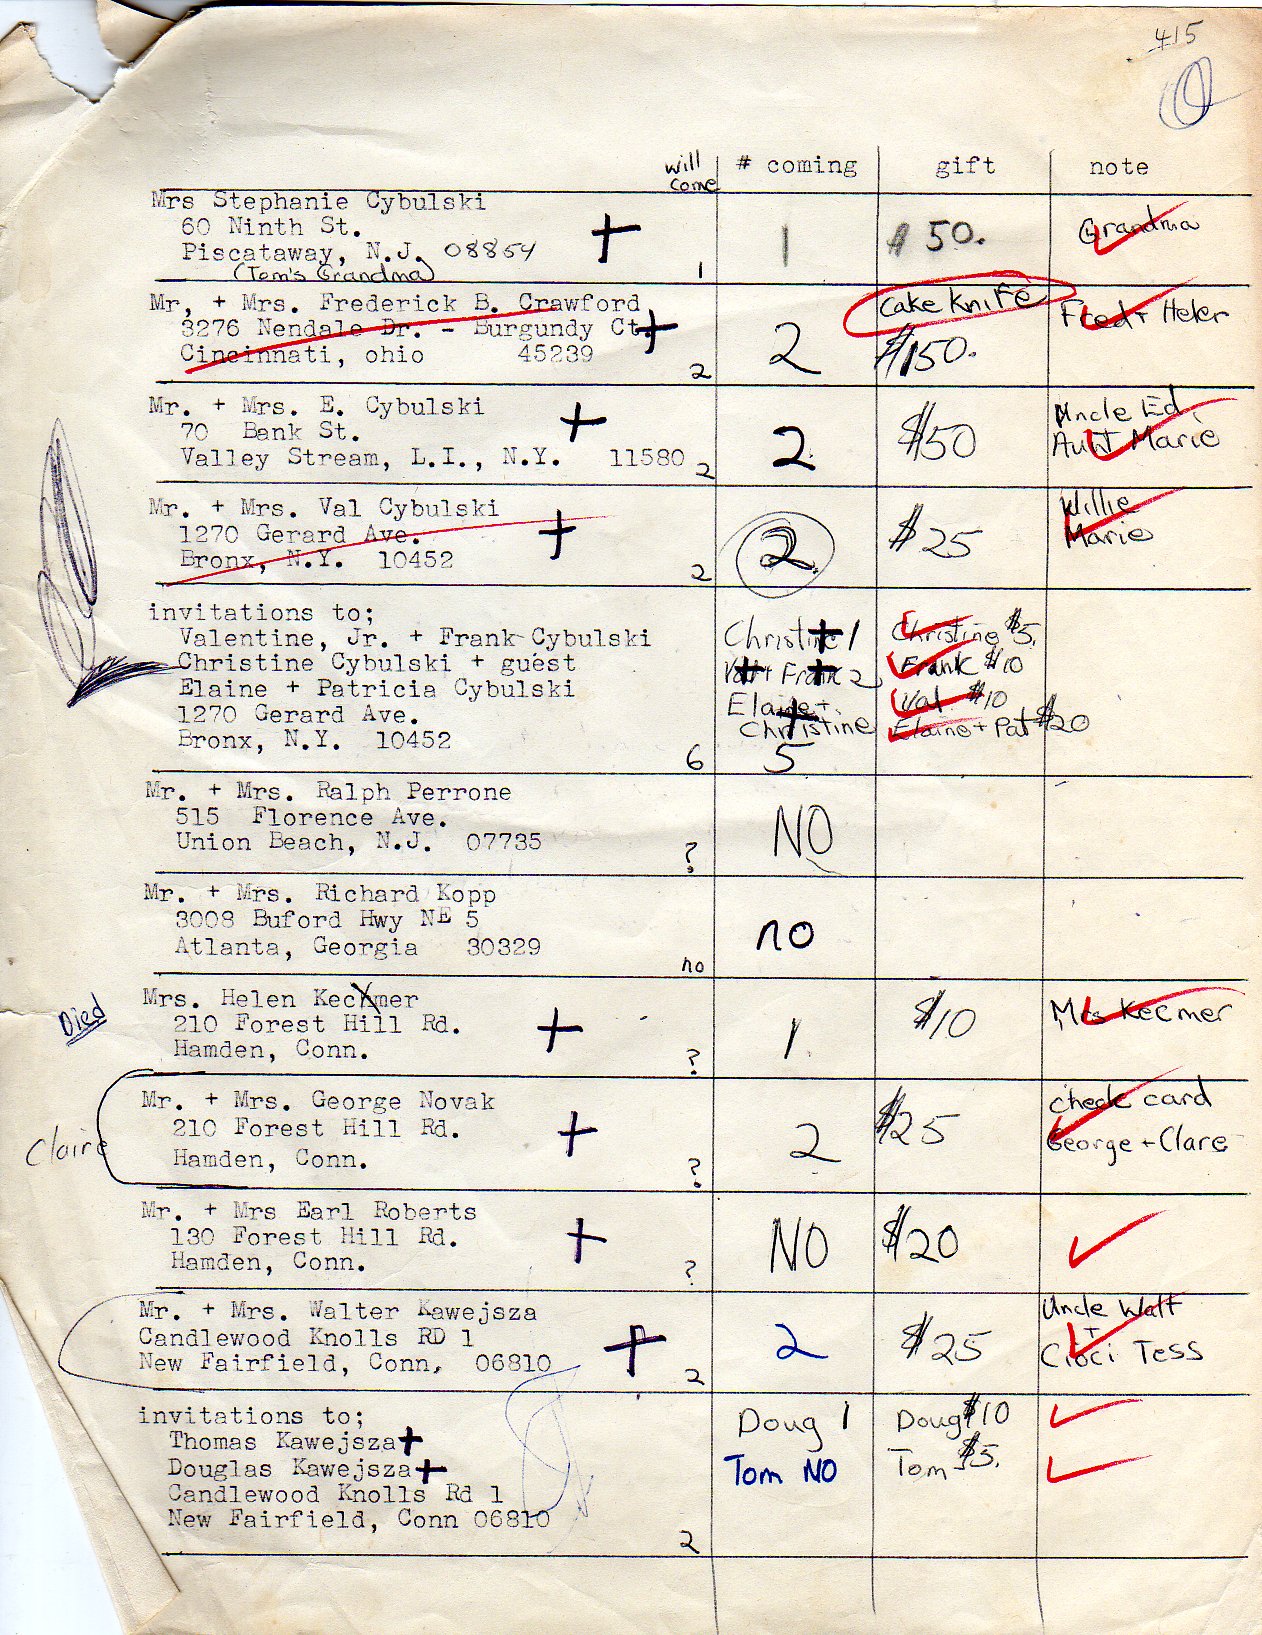 415
will come # coming gift note
Mrs Stephanie Cybulski
60 Ninth St.
Piscataway, N.J. 08854
(Tom's Grandma)
1 1 $50. Grandma
Mr, + Mrs. Frederick B. Crawford
3276 Nendale Dr. - Burgundy Ct.
Cincinnati, ohio 45239
2 2 Cake Knife
$150.
Fred + Helen
Mr. + Mrs. E. Cybulski
70 Bank St.
Valley Stream, L.I., N.Y. 11580
2 2 $50 Uncle Ed,
Aunt Marie
Mr. + Mrs. Val Cybulski
1270 Gerard Ave.
Bronx, N.Y. 10452
2 2 $25 Willie
Marie
invitations to;
Valentine, Jr. + Frank Cybulski
Christine Cybulski + guest
Elaine + Patricia Cybulski
1270 Gerard Ave.
Bronx, N.Y. 10452
6
Christine 1
Val + Frank 2
Elaine +
Christine
5
Christine $5.
Frank $10
Val $10
Elaine + Pat $20
Mr. + Mrs. Ralph Perrone
515 Florence Ave.
Union Beach, N.J. 07735
? NO
Mr. + Mrs. Richard Kopp
3008 Buford Hwy NE 5
Atlanta, Georgia 30329
no no
Died
Mrs. Helen Kecxmer
210 Forest Hill Rd.
Hamden, Conn.
? 1 $10 Mrs Kecmer
Claire
Mr. + Mrs. George Novak
210 Forest Hill Rd.
Hamden, Conn.
? 2 $25 check card
George + Clare
Mr. + Mrs Earl Roberts
130 Forest Hill Rd.
Hamden, Conn.
? NO $20
Mr. + Mrs. Walter Kawejsza
Candlewood Knolls RD 1
New Fairfield, Conn, 06810
2 2 $25 Uncle Walt
+
Cioci Tess
invitations to;
Thomas Kawejsza
Douglas Kawejsza
Candlewood Knolls Rd 1
New Fairfield, Conn 06810
2
Doug 1 Doug $10
Tom NO Tom $5.